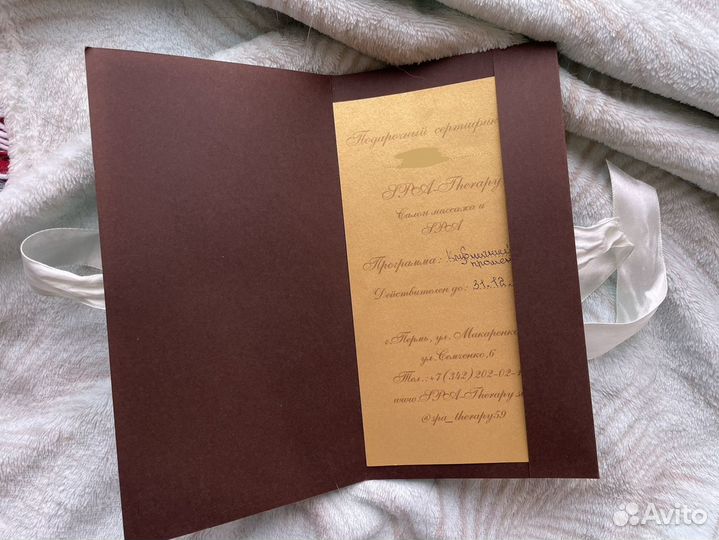 Подарочный сертифик
SPA-Therapy
Салон массажа и
SPA
Программа: Клубничные
Действителен до: 31.12.
г.Пермь, ул. Макаренко
ул.Семченко,6
Тел.:+7(342)202-02-
www.SPA-Therapy.
@spa_therapy59
Avito